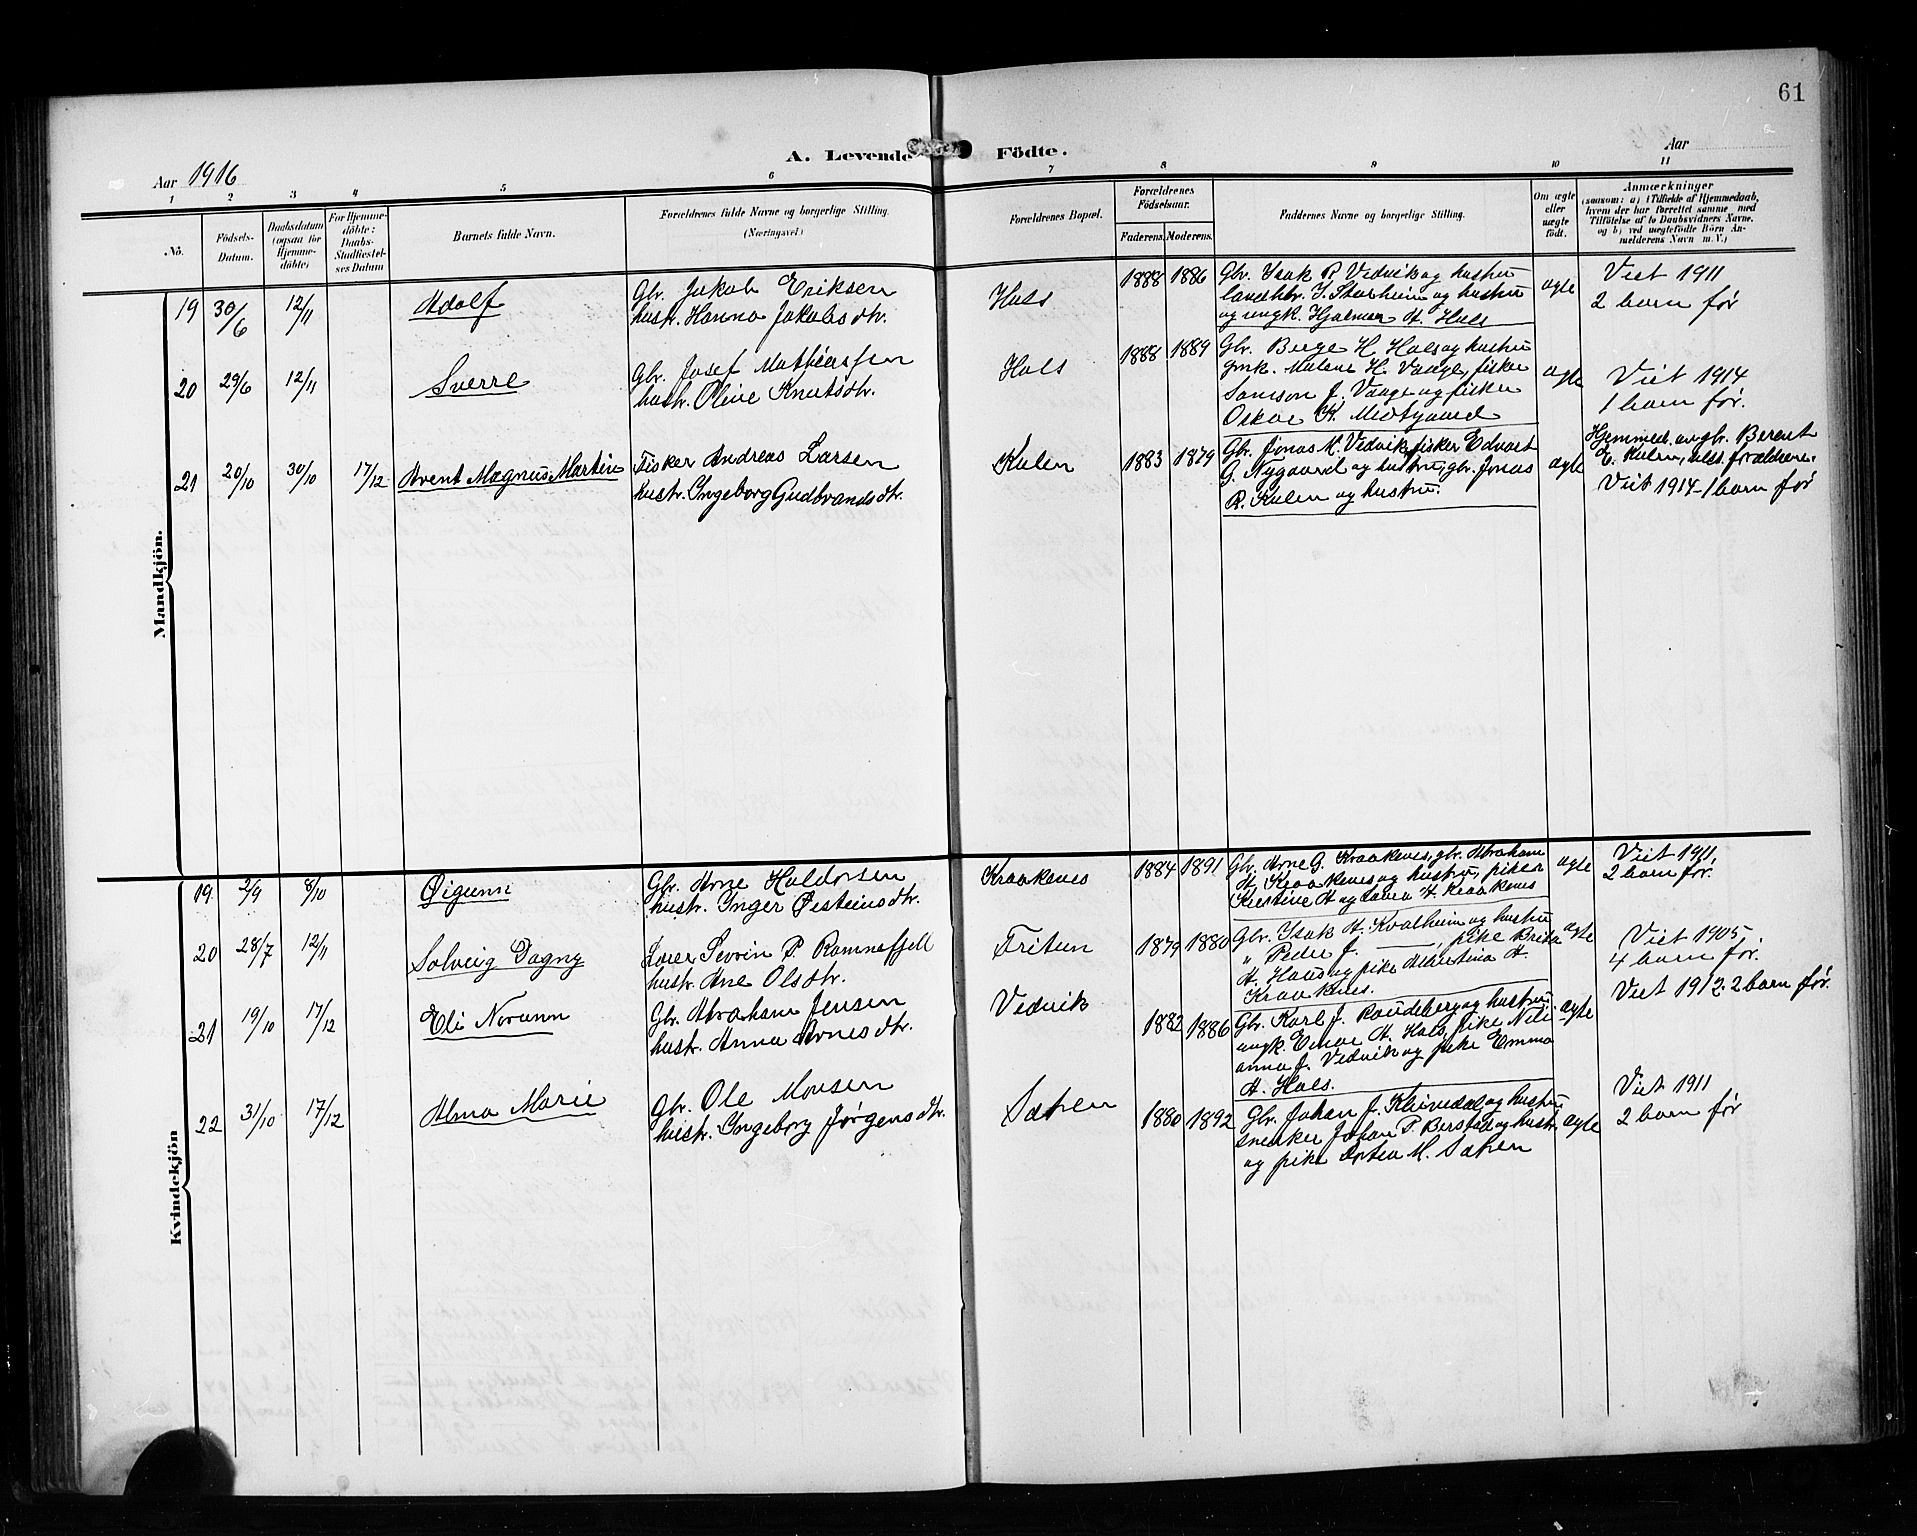 61
A. Levende Födte.
Aar 1916
Aar
1 2 3 4 5 6 7 8 9 10 11
No.
Födsels-Datum.
Daabsdatum (ogsaa for Hjemme-döbte)
For Hjemme-döbte: Daabs-Stadfæstel-ses Datum
Barnets fulde Navn.
Forældrenes fulde Navne og borgerlige Stilling.
(Næringsvei.)
Forældrenes Bopæl.
Forældrenes Födselsaar.
Faderens. Moderens.
Faddernes Navne og borgerlige Stilling.
Om ægte eller uægte født.
Anmærkninger
(saasom: a) i Tilfælde af Hjemmedaab,
hvem der har forrettet samme med
Tilföielse af to Daabsvidners Navne.
og b) ved uægtefödte Börn An-
melderens Navn m. V.)
Mandkjön.
19 30/6 12/11 Adolf
Gbr. Jakob Eriksen
hustr. Hanna Jakobsdtr.
Hals 1888 1886
Gbr. Isak R. Vedvik og hustru
landhbr. J. Starheim og hustru
og ungk. Hjalmar A. Hals
ægte
Viet 1911
2 barn før
20 29/6 12/11 Sverre
Gbr. Josef Mathiassen
hustr. Oline Knutsdtr.
Hals 1888 1889
Gbr. Berge H. Hals og hustru
gmk. Malene H. Vaage, fisker
Samson J. Vaage og fisker
Oskar K. Midtgaard
ægte
Viet 1914
1 barn før.
21 20/10 30/10 17/12 Arent Magnus Martin
Fisker Andreas Larsen
hustr. Ingeborg Gudbrandsdtr.
Kulen 1883 1879
Gbr. Jonas M. Vedvik, fisker Edvart
G. Nygaard og hustru, gbr. Jonas
R. Kulen og hustru.
ægte
Hjemmed. av gbr. Berent
E. Kulen, forældrene.
Viet 1914 - 1 barn før
Kvindekjön
19 2/9 8/10 Øigunn
Gbr. Arne Haldorsen
hustr. Inger Øisteinsdtr.
Kraakenes 1884 1891
Gbr. Arne G. Kraakenes, gbr. Abraham
A. Kraakenes og hustru, piker
Kirstine A og Lovra A. Kraakenes
ægte
Viet 1911,
2 barn før.
20 28/7 12/11 Solveig Dagny
Lærer Sevrin P. Ramnefjell
hustr. Ane Olsdtr.
Fritun 1879 1880
Gbr. Isak A. Kvalheim og hustru
" Peder J. ——, pike Brita
A. Hals og pike Albertina A.
Kraakenes.
ægte
Viet 1905
4 barn før.
21 19/10 17/12 Eli Norunn
Gbr. Abraham Jensen
hustr. Anna Arnesdtr.
Vedvik 1882 1886
Gbr. Karl J. Raudeberg og hustru,
ungk. Einar A. Hals, pike Nili-
anna J. Vedvik og pike Emma
A. Hals.
ægte
Viet 1912. 2 barn før.
22 31/10 17/12 Alma Marie
Gbr. Ole Monsen
hustr. Ingeborg Jørgensdtr.
Sætren 1880 1892
Gbr. Johan J. Kleivedal og hustru,
snekker Johan T. Berstad og hustr.
og pike Dortea M. Sætren
ægte
Viet 1911
2 barn før